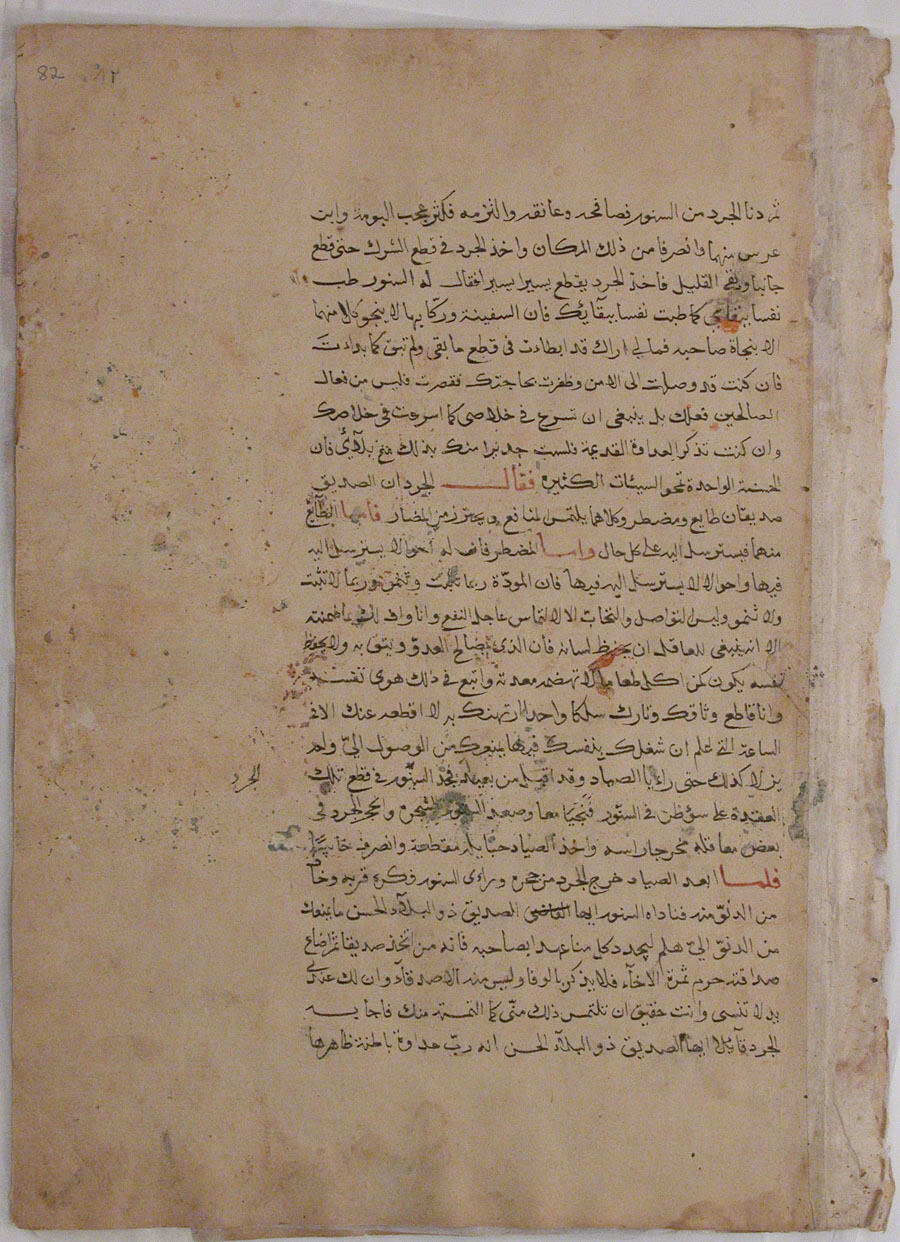 82 ٨٢
ثم دنا الجرد من السنور فصافحه وعانقه والتزمه فكثر عجب البومة وابن
عرس منهما وانصرفا من ذلك المكان واخذ الجرد في قطع الشرك حتى قطع
جانبا وبقى القليل فاخذ الجرد يقطع يسيرا يسيرا فقال له السنور طب
نفسا ببقاءي كما طبت نفسا ببقآيك فان السفينة وركابها لا ينجو كلا منهما
الا بنجاة صاحبه فمالي اراك قد ابطات في قطع ما بقى ولم تبق كما بدات
فان كنت قد وصلت الى الامن وظفرت بحاجتك فقصرت فليس من فعال
الصالحين فعلك بل ينبغى ان تسرع في خلاصى كما اسرعت في خلاصك
وان كنت تذكر العداوة القديمة فلست جديرا منك بذلك مع بلآءي فان
الحسنة الواحدة تمحو السيئات الكثيرة فقال الجرد ان الصديق
صديقان طايع ومضطر وكلاهما يلتمس المنافع ويحترز من المضار فاما الطآيع
منهما فيسترسل اليه على كل حال واما المضطر فانه له احوالا يسترسل اليه
فيها واحوالا لا يسترسل اليه فيها فان المودة ربما تثبت وتنمو وربما لا تثبت
ولا تنمو وليس التواصل والتحاب الا لالتماس عاجل النفع وانا واف لك بما ضمنته
الا انه ينبغى للعاقل ان يحفظ لسانه فان الذى يصالح العدو ويثق به ولا يحفظ
نفسه يكون كمن اكل طعاما لا تهضمه معدته واتبع في ذلك هوى نفسه
وانا قاطع وثاقك وتارك سلكا واحدا ارتهنك به لا اقطعه عنك الا في
الساعة التى اعلم ان شغلك بنفسك فيها يمنعك من الوصول الىّ ولم
يزلا كذلك حتى رايا الصياد وقد اقبل من بعيد فجد السنور في قطع تلك
الجرد
العقدة على سؤ ظن في السنور فنجيا معا وصعد السنور الشجرة وانجحر الجرد في
بعض معاقله مخرجا راسه واخذ الصياد حبايله مقطعة وانصرف خايبا
فلما ابعد الصياد خرج الجرد من جحره وراءى السنور فكره قربه وخاف
من الدنو منه فناداه السنور ايها الصديق ذو البلآء الحسن ما يمنعك
من الدنو الىّ هلم ليجدد كل منا عهدا بصاحبه فانه من اتخذ صديقا ثم اضاع
صداقته حرم ثمرة الاخآء فلا يذكر بالوفا وليس منه الاصدقآء وان لك عندى
يد لا تنسى وانت حقيق ان تلتمس ذلك منى كما التمسته منك فاجابه
الجرد قآيلا ايها الصديق ذو البلآء الحسن انه رب عداوة باطنة ظاهرها